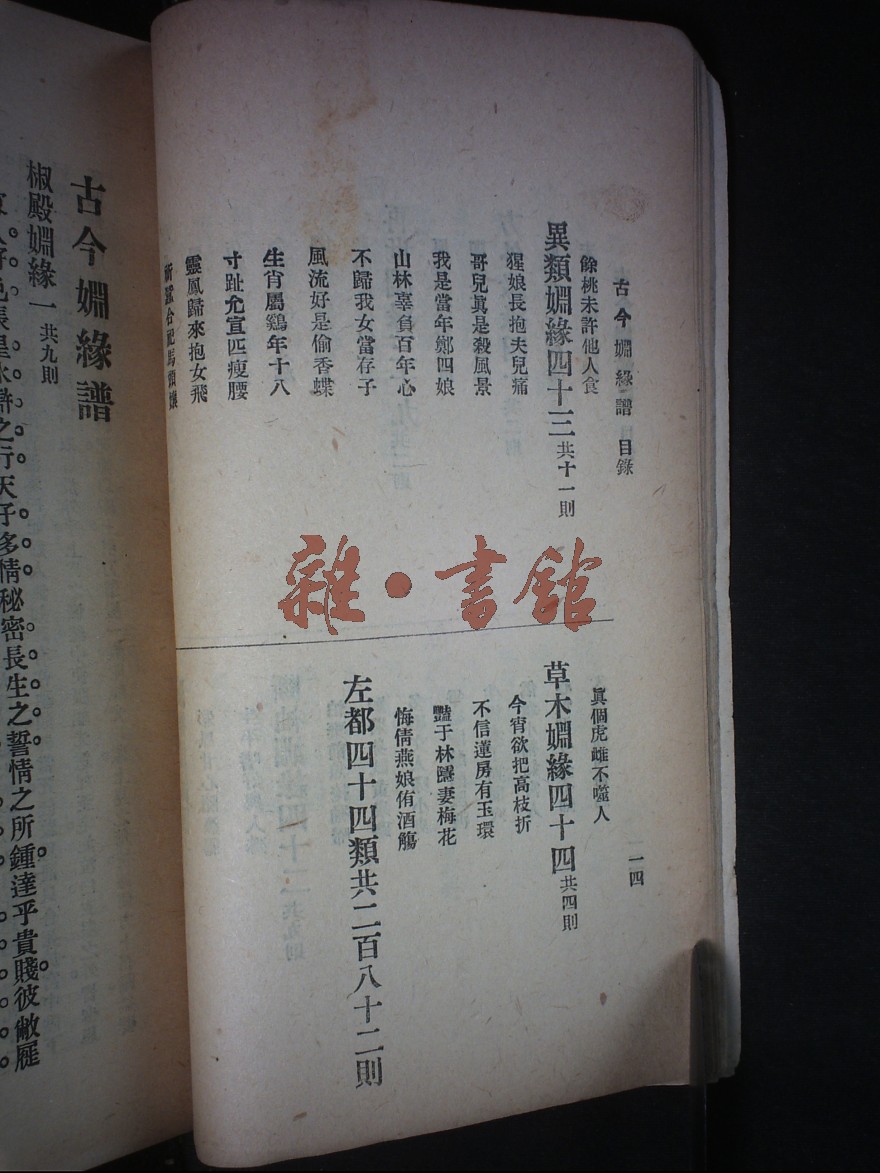 古今婣緣譜 目錄
一四
餘桃未許他人食
異類婣緣四十三 共十一則
猩娘長抱夫兒痛
哥兒眞是殺風景
我是當年鄭四娘
山林辜負百年心
不歸我女當存子
風流好是偷香蝶
生肖屬鷄年十八
寸趾允宣匹瘦腰
靈鳳歸來抱女飛
合配馬頭孃
眞個虎雌不噬人
草木婣緣四十四 共四則
今宵欲把高枝折
不信蓮房有玉環
豔于林麗妻梅花
悔倩燕娘侑酒觴
左都四十四類共二百八十二則
雜·書館
古今婣緣譜
椒殿婣緣一 共九則
之行天子多情秘密長生之誓情之所鍾達乎貴賤彼敝屣